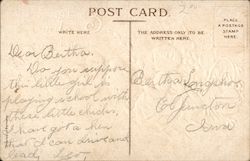 POST CARD.
PLACE
A POSTAGE
STAMP
HERE
WRITE HERE
THE ADDRESS ONLY TO BE
WRITTEN HERE.
Dear Bertha.
Do you suppose
this little girl is
playing school with
these little chicks,
I have got a hen
that I can drive and
lead,
Bertha
Iowa